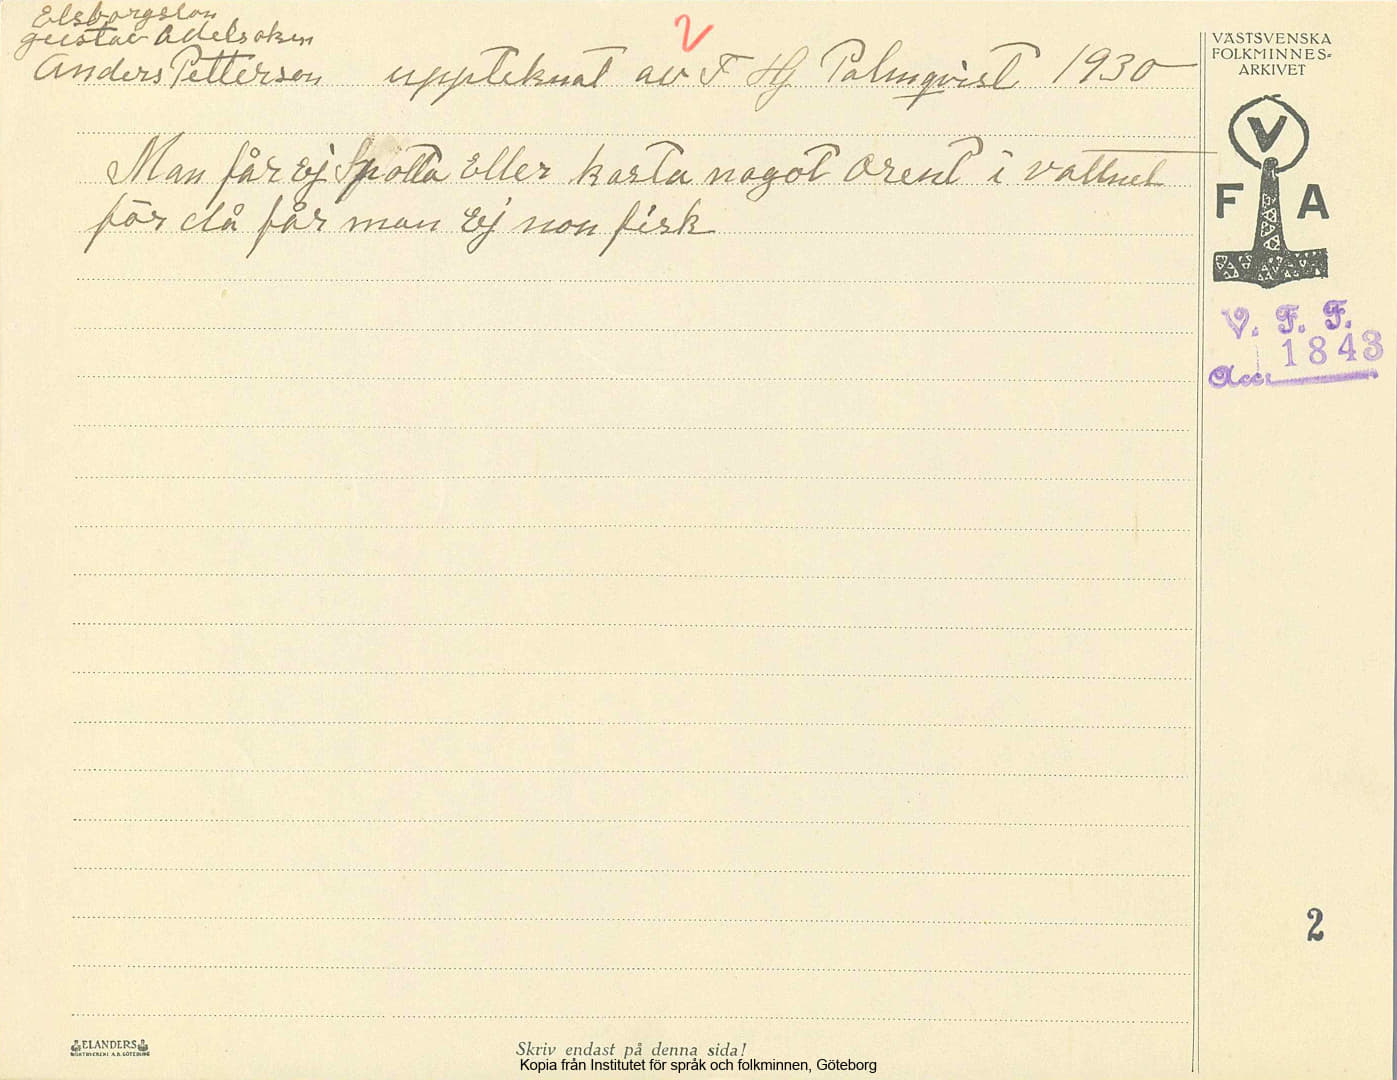 Elsborgslän
Gustav Adelsoken
2
Anders Petterson uppteknat av F Hj Palmqvist 1930
Man får ej Spotta Eller kasta nagot Orent i vattnet
för då får man Ej non fisk
VÄSTSVENSKA
FOLKMINNES-
ARKIVET
V
F A
V. F. F.
1843
Acc.
2
ELANDERS
Skriv endast på denna sida!
Kopia från Institutet för språk och folkminnen, Göteborg